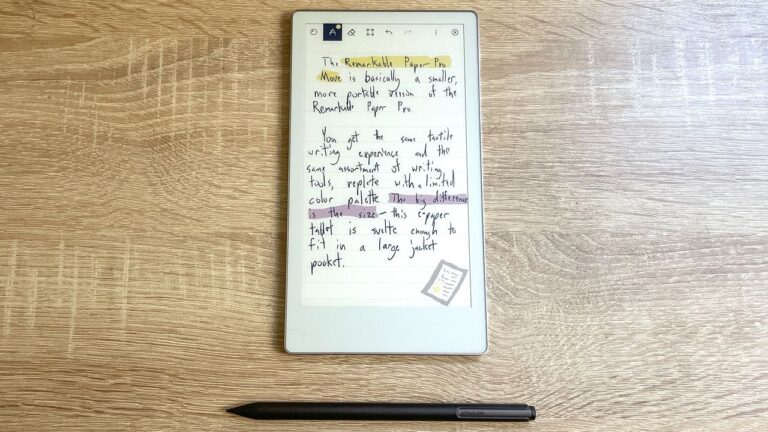 A
The Remarkable Paper Pro
Move is basically a smaller,
more portable version of the
Remarkable Paper Pro.
You get the same tactile
writing experience and the
same assortment of writing
tools, replete with a limited
color palette. The big difference
is the size - this e-paper
tablet is svelte enough to
fit in a large jacket
pocket.